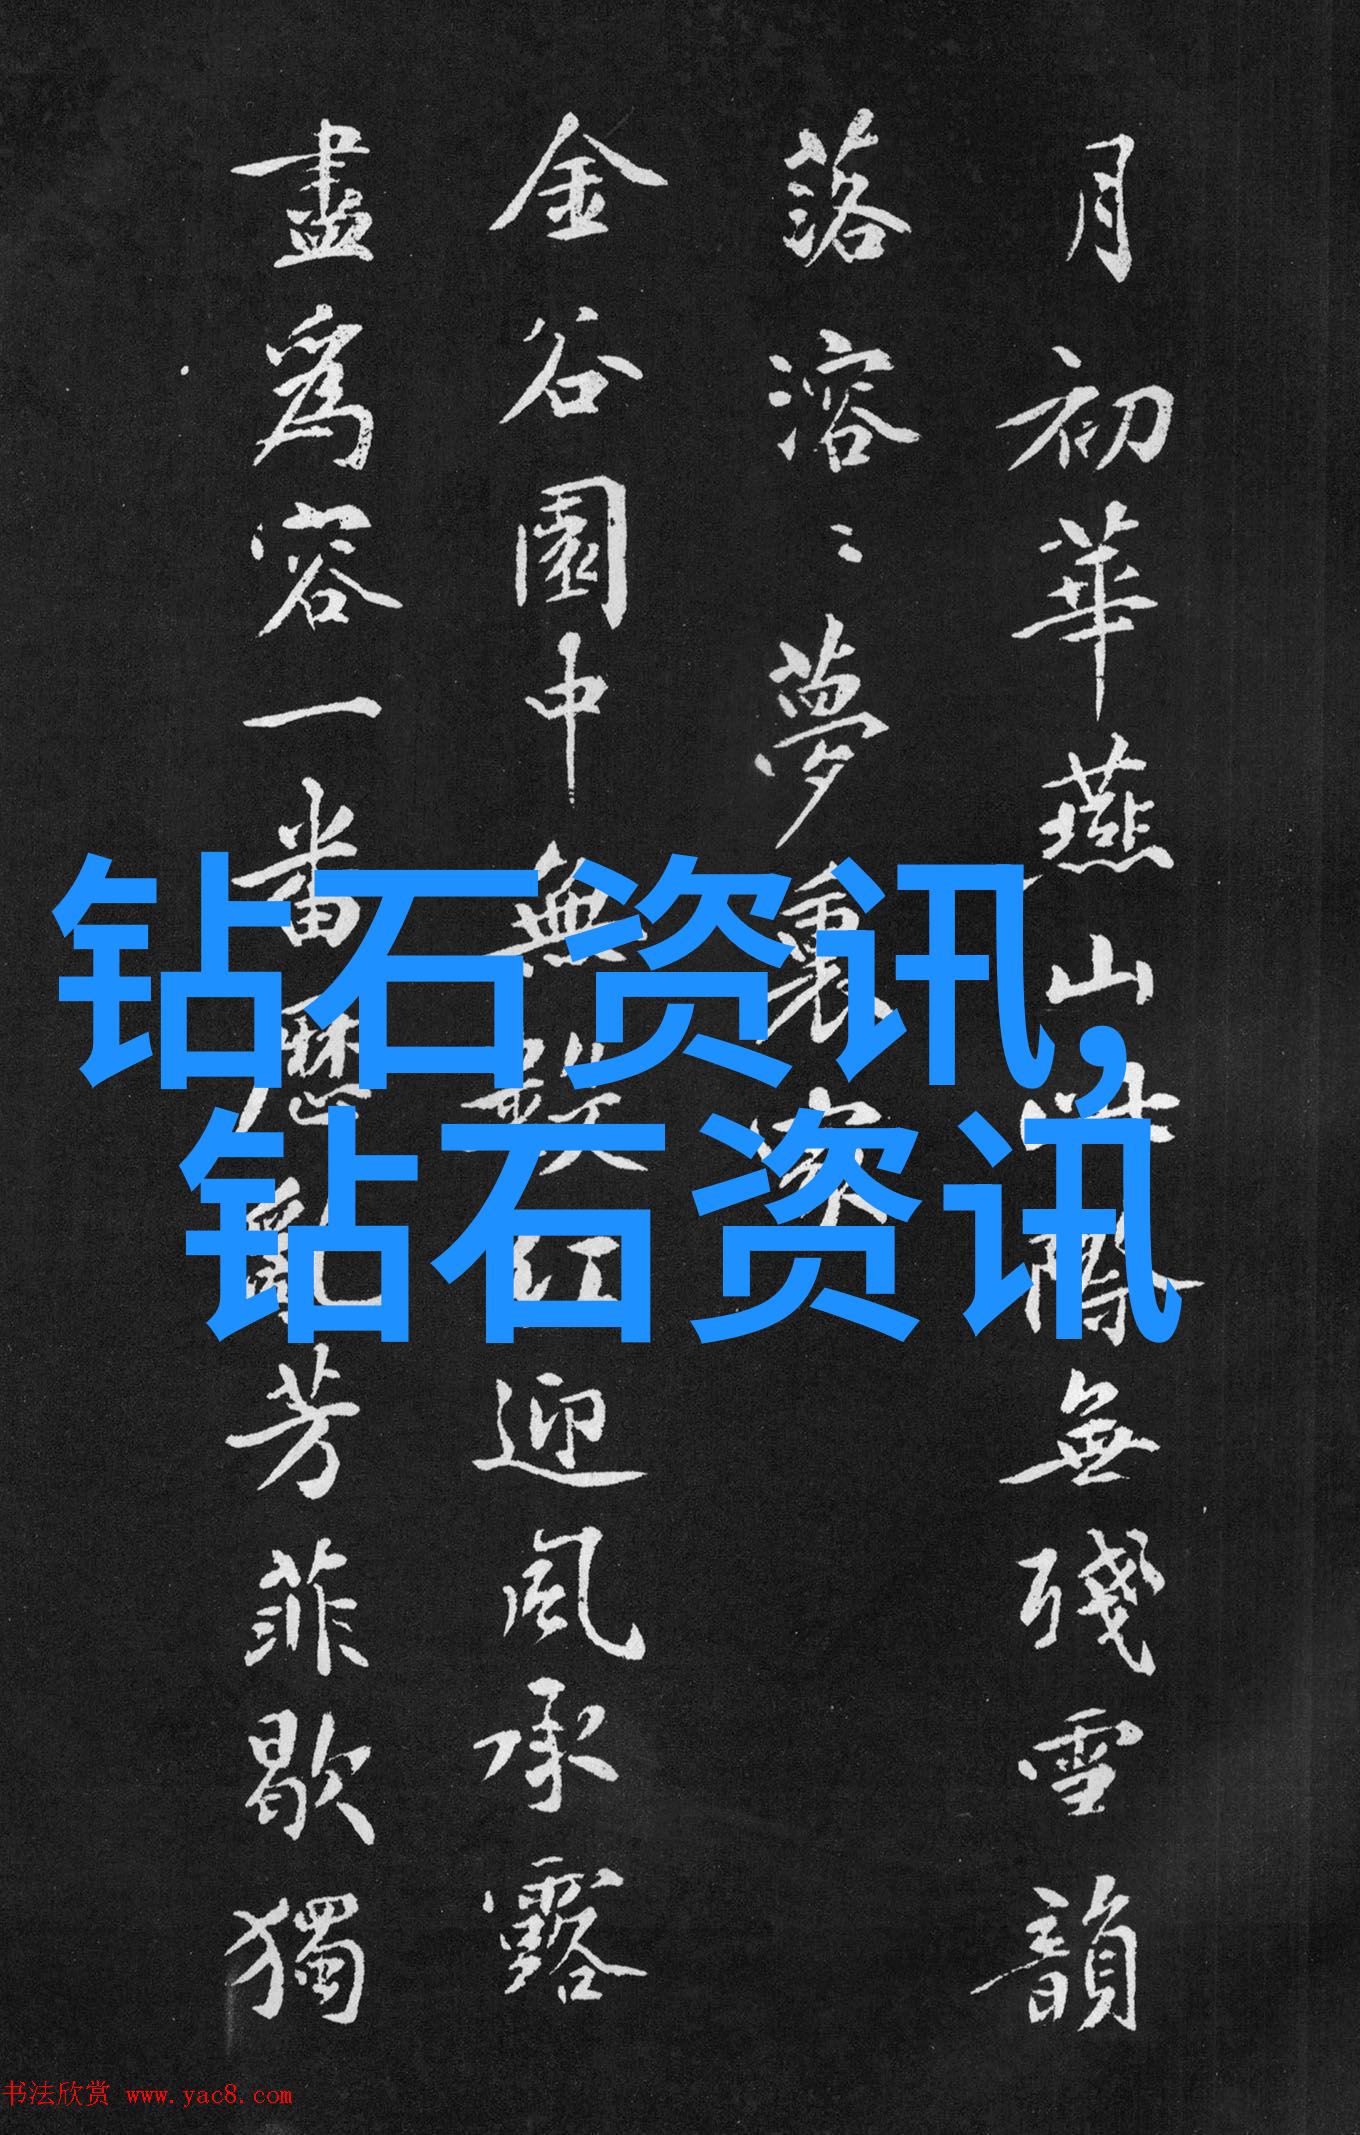 月初華燕山無殘雪韻
落溶〻夢裏家
金谷園中無數紅迎風承露
盡為容一番歷亂芳菲歇獨
钻石资讯,
钻石资讯
书法欣赏 www.yac8.com